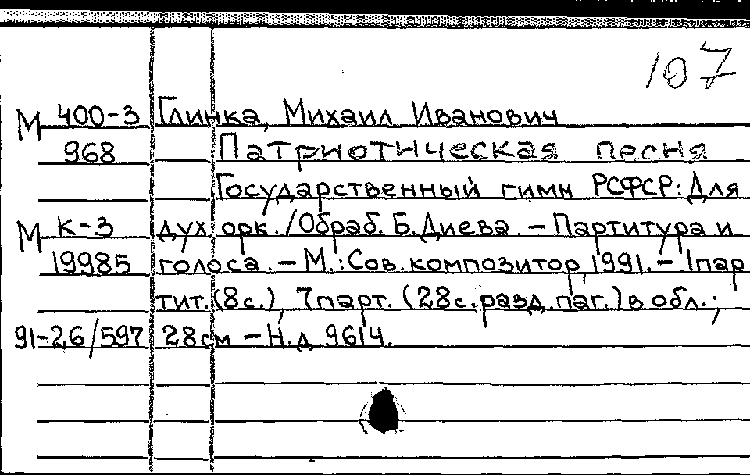 107
М 400-3 Глинка, Михаил Иванович
968 Патриотическая песня
Государственный гимн РСФСР: Для
М К-3 дух. орк./Обраб. Б. Диева. – Партитура и
19985 голоса. – М.: Сов. композитор, 1991. – 1 пар
тит. (8с.), 7 парт. (28с. разд. паг.) в обл.;
91-26/597 28см – Н.д 9614.